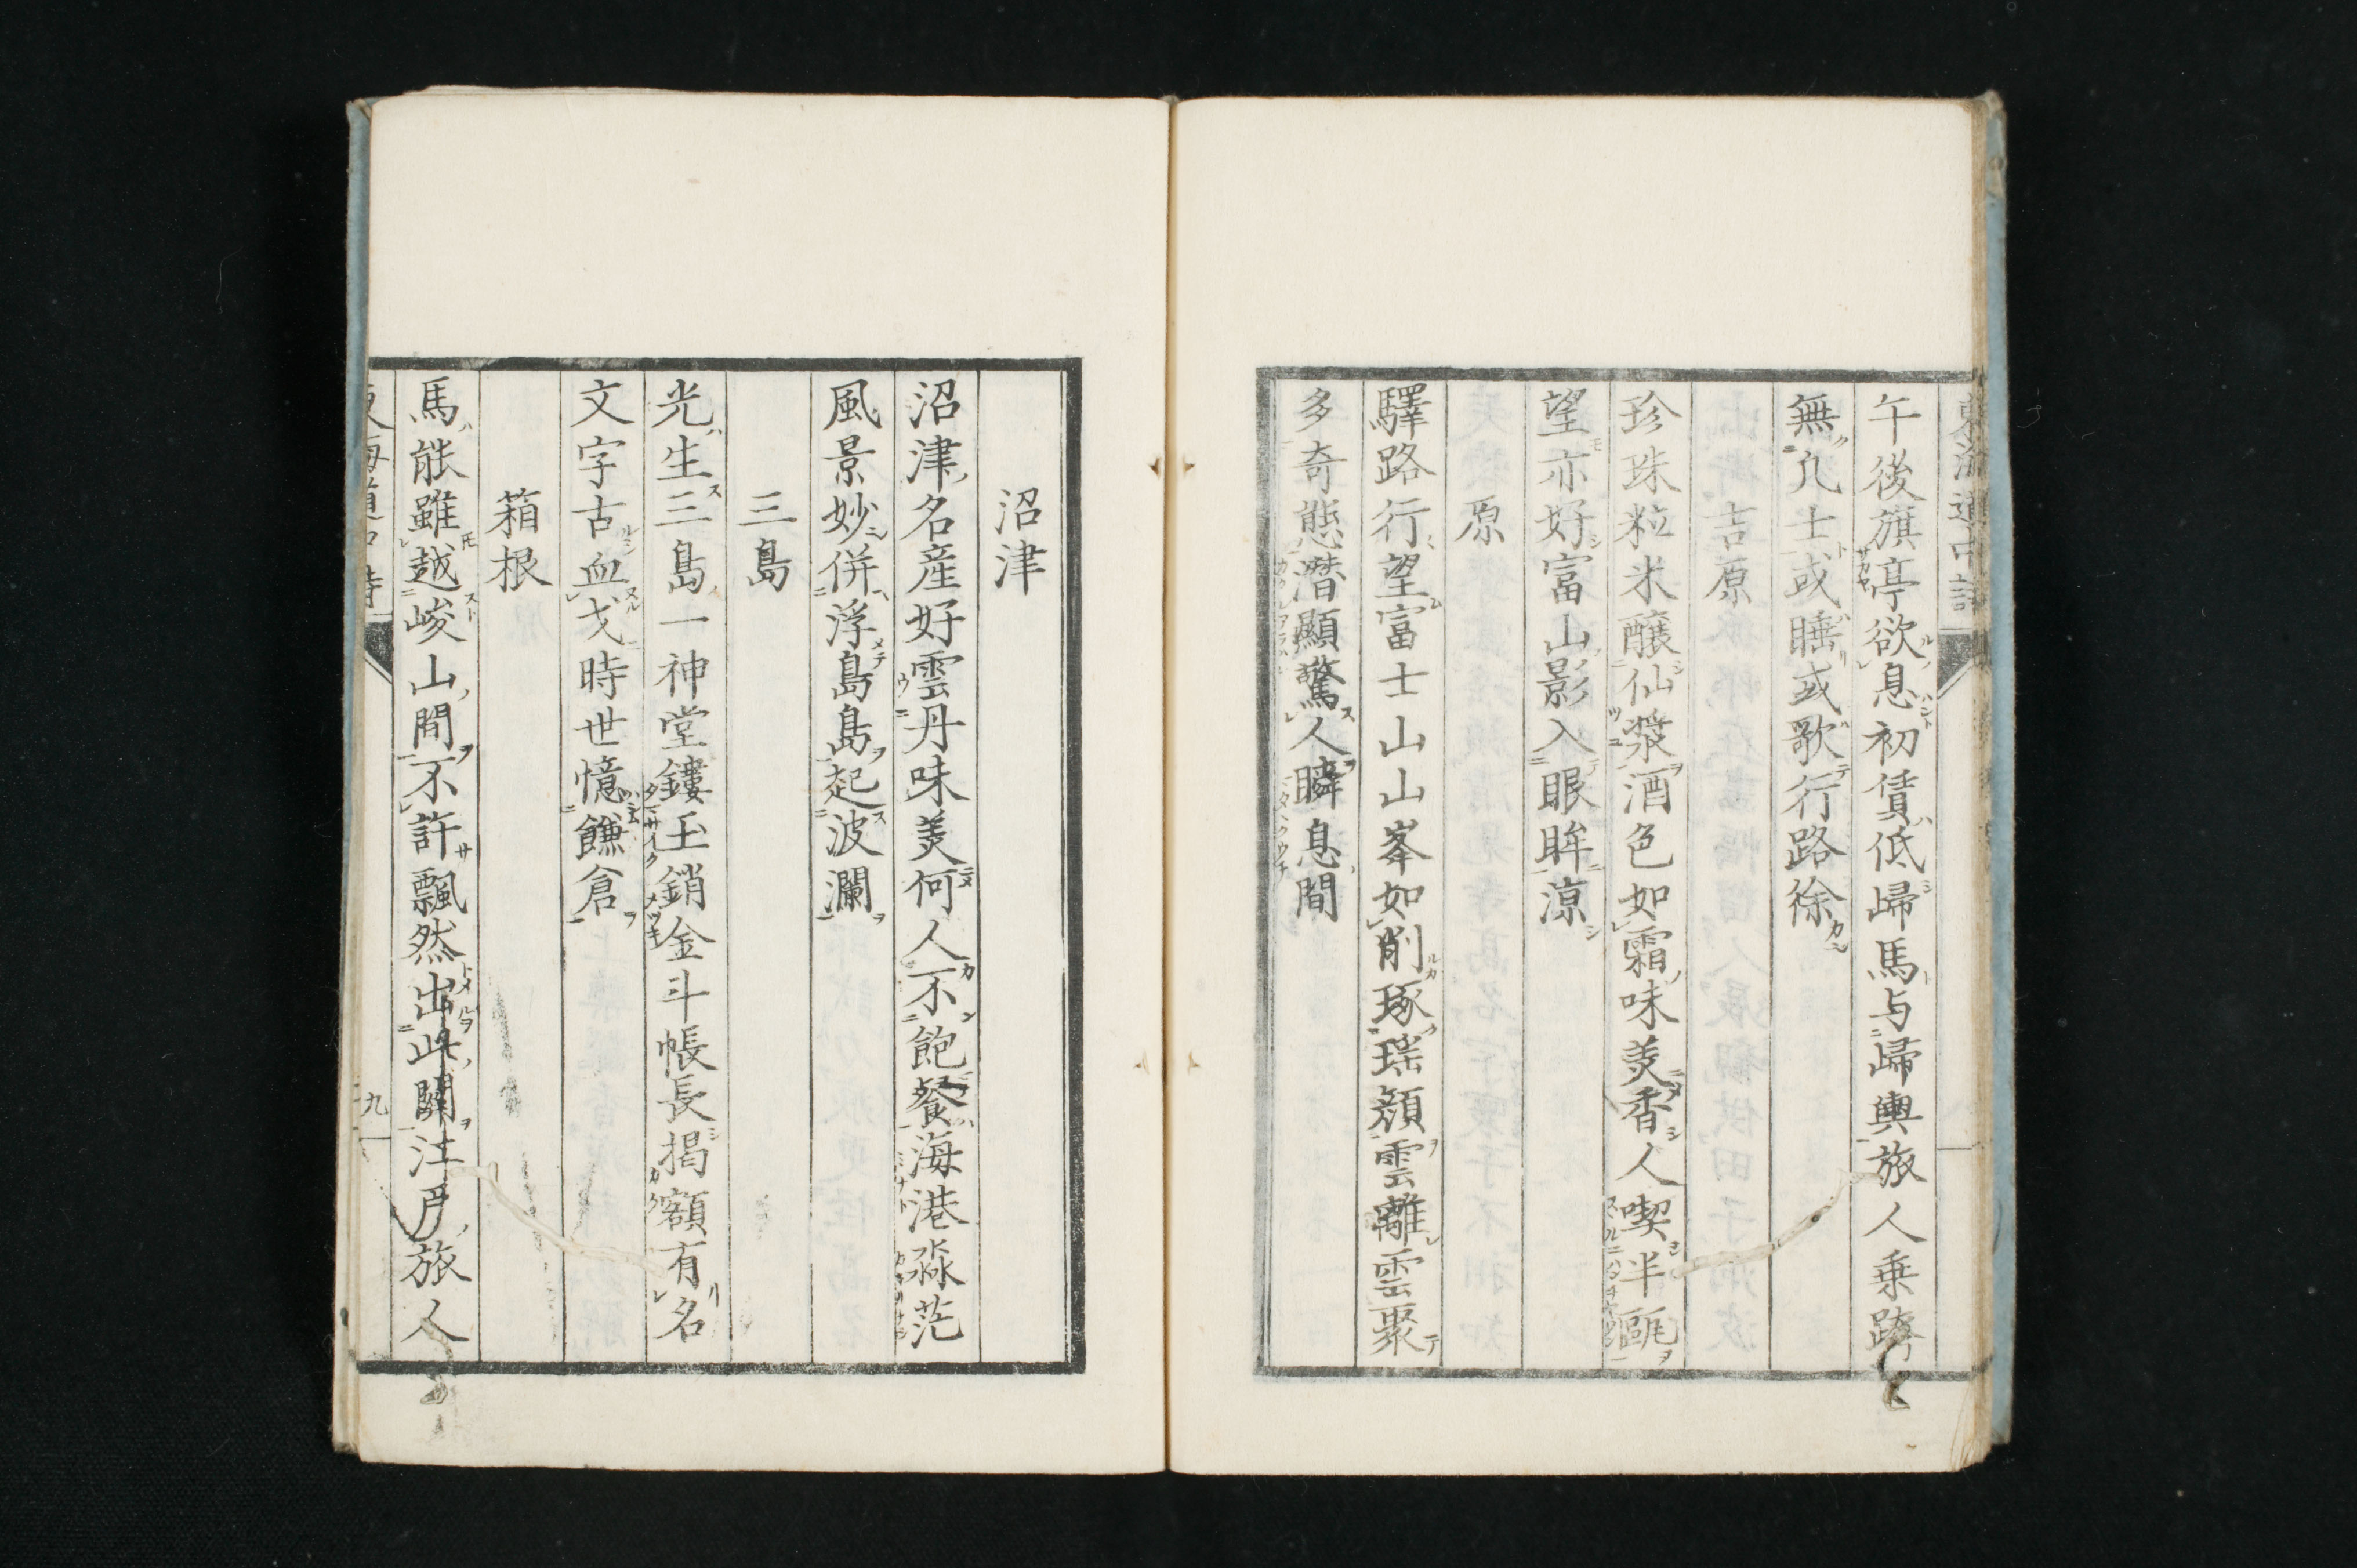 午後旗亭欲息初賃低歸馬与歸輿旅人乗跨
無凡士或睡或歌行路徐
吉原
珍珠粒米釀仙漿酒色如霜味美香人喫半甌
望亦好富山影入眼眸涼
原
驛路行望富士山山峯如削琢瑶顏雲離雲聚
多奇態潛顯驚人瞬息間
沼津
沼津名産好雲丹味美何人不飽餐海港淼茫
風景妙併浮島島起波瀾
三島
光生三島一神堂鏤玉銷金斗帳長掲額有名
文字古血戈時世憶鎌倉
箱根
馬能雖越峻山間不許飄然出此關江戸旅人
九